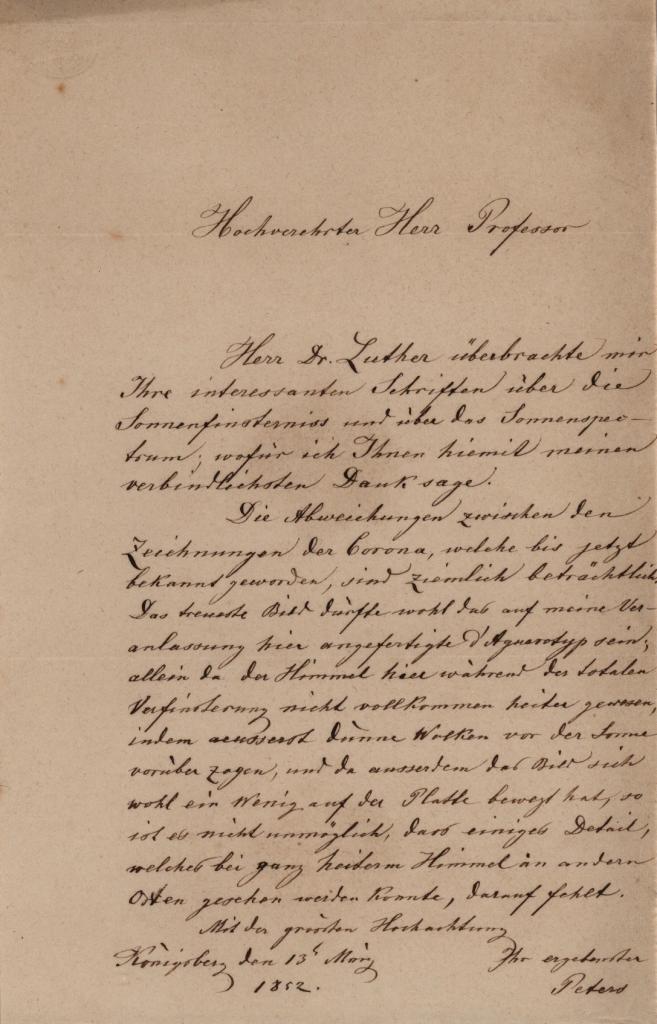 Hochverehrter Herr Professor
Herr Dr. Luther überbrachte mir
Ihre interessanten Schriften über die
Sonnenfinsterniss und über das Sonnenspec-
trum; wofür ich Ihnen hiemit meinen
verbindlichsten Dank sage.
Die Abweichungen zwischen den
Zeichnungen der Corona, welche bis jetzt
bekannt geworden, sind ziemlich beträchtlich.
Das treueste Bild dürfte wohl das auf meine Ver-
anlassung hier angefertigte d'Aguerotyp sein;
allein da der Himmel hier während der totalen
Verfinsterung nicht vollkommen heiter gewesen,
indem aeusserst dünne Wolken vor der Sonne
vorüber zogen, und da ausserdem das Bild sich
wohl ein Wenig auf der Platte bewegt hat, so
ist es nicht unmöglich, dass einiges Detail,
welches bei ganz heiterm Himmel an andern
Orten gesehen werden konnte, darauf fehlt.
Mit der grössten Hochachtung
Königsberg den 13t März Ihr ergebenster
1852. Peters